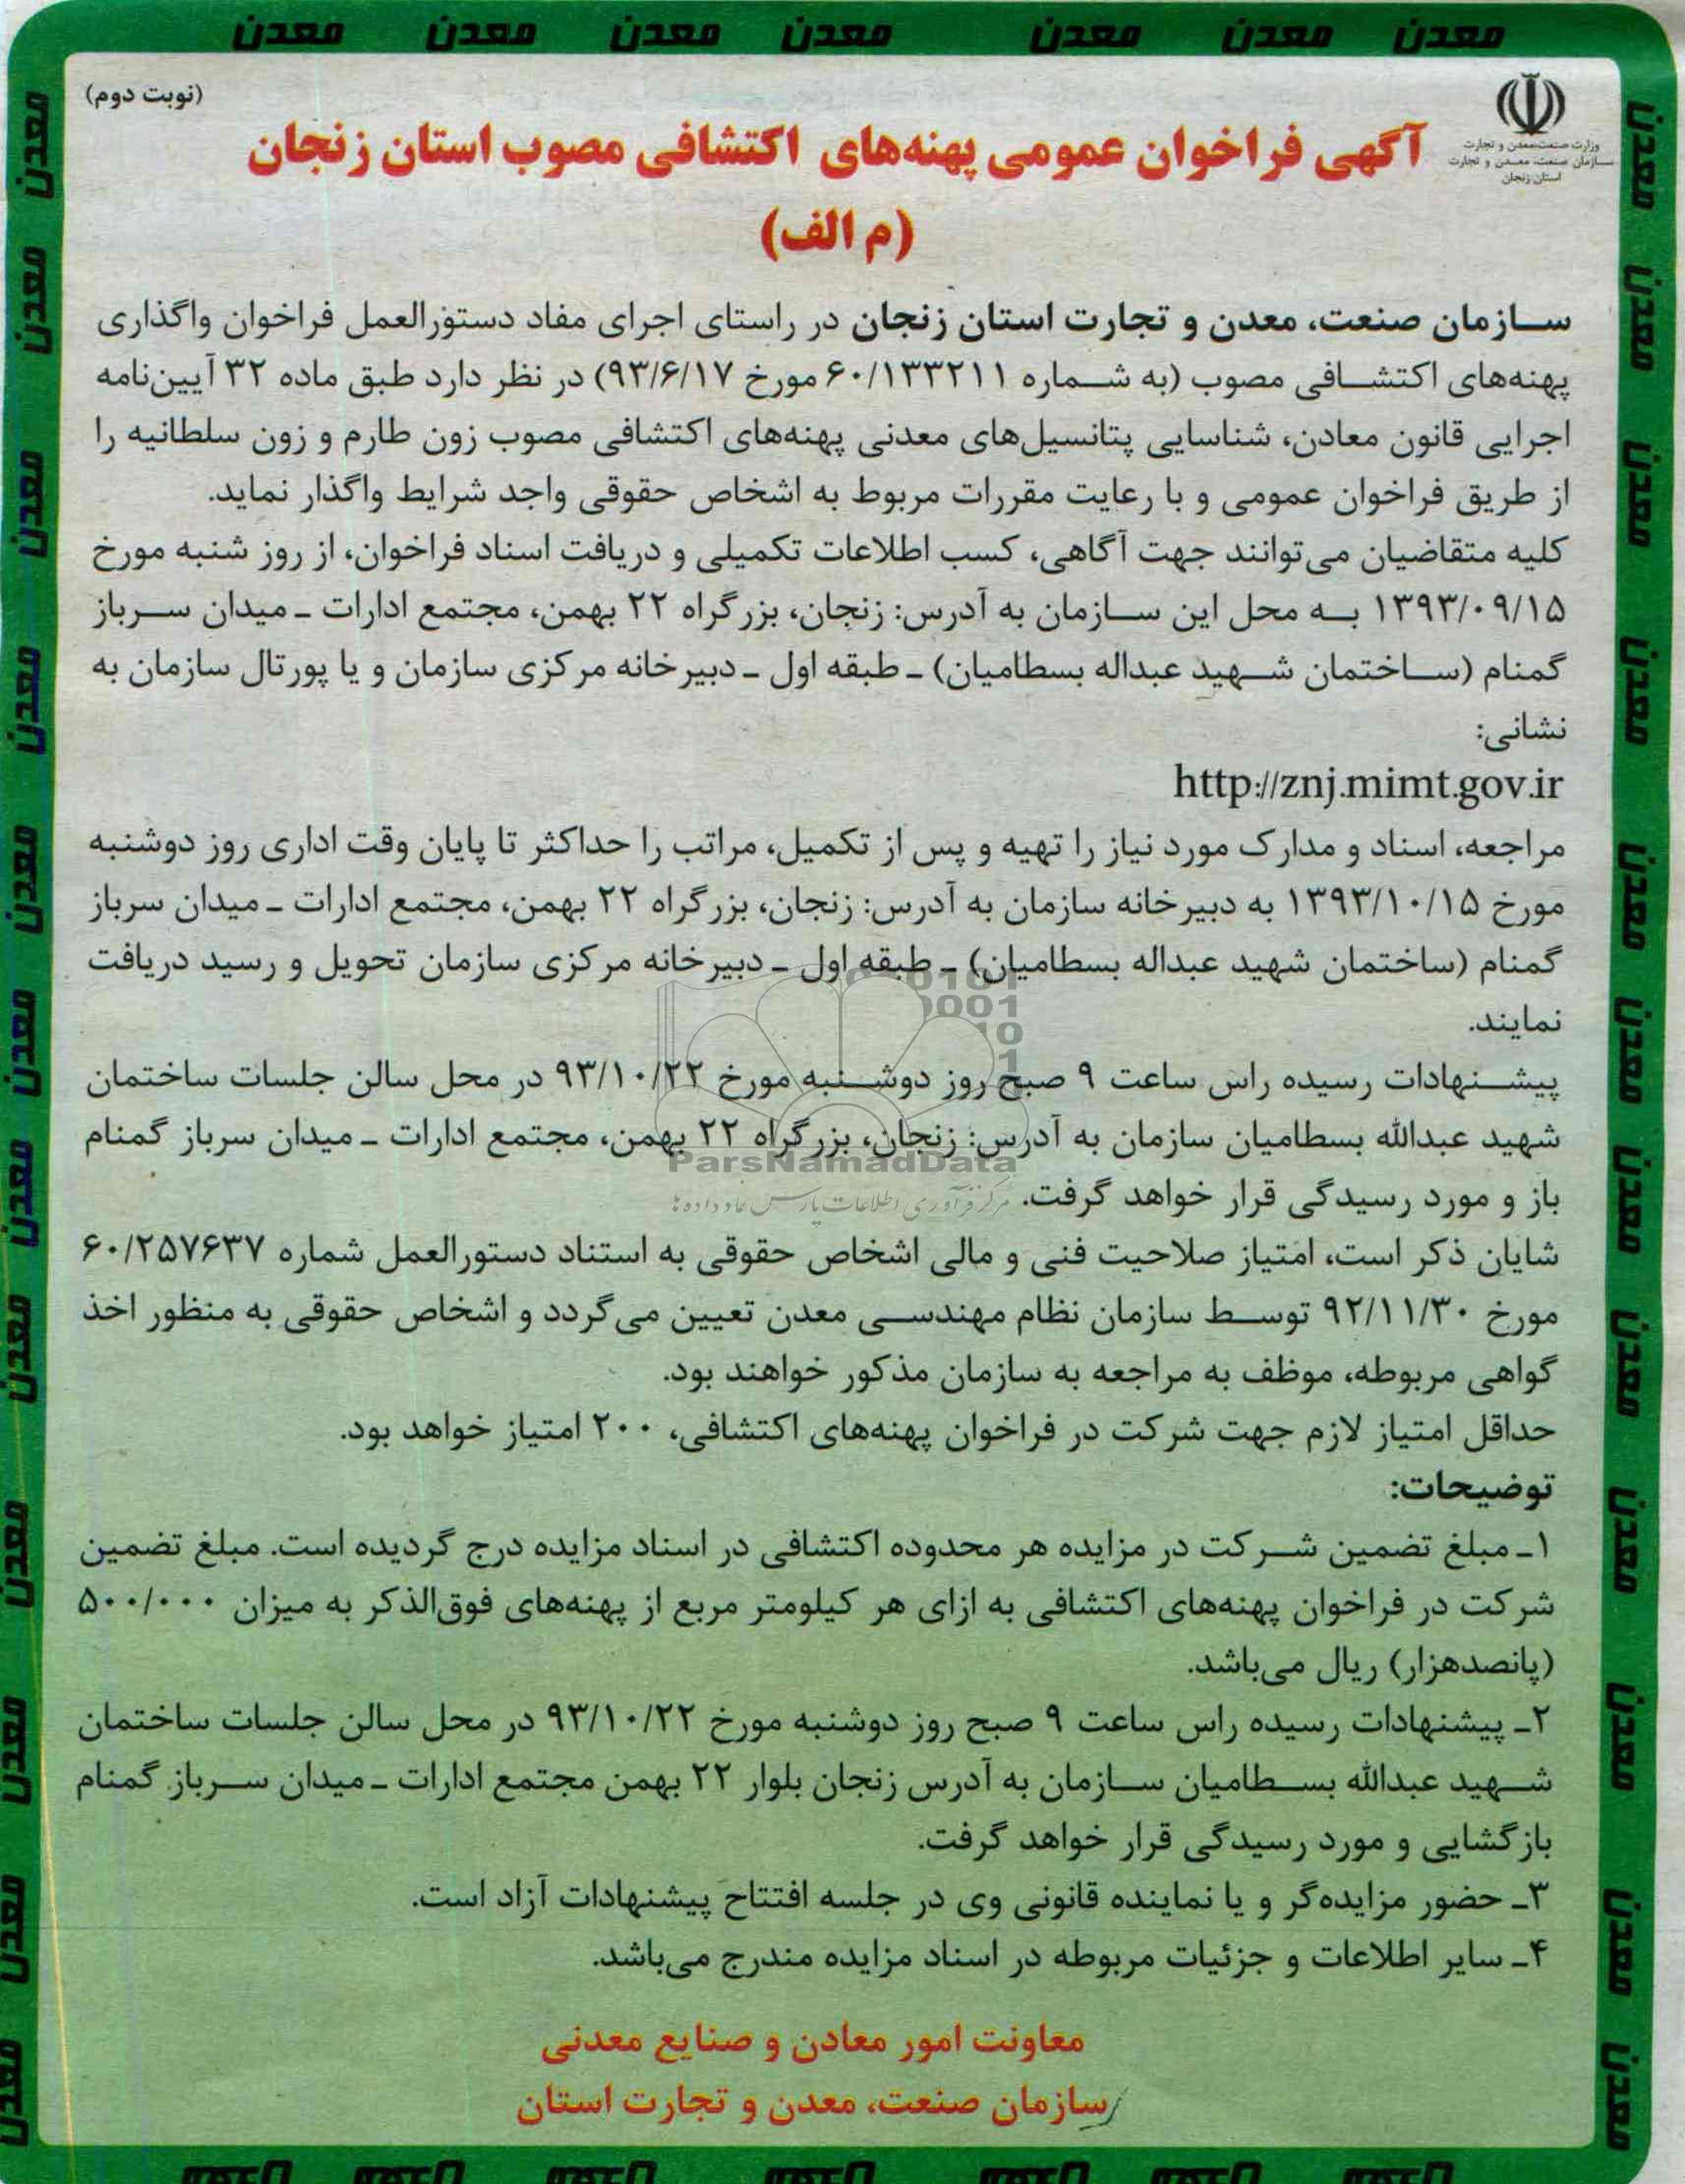 معدن معدن معدن معدن معدن معدن معدن
(نوبت دوم)
وزارت صنعت،معدن و تجارت
سازمان صنعت، معدن و تجارت
استان زنجان
آگهی فراخوان عمومی پهنه‌های اکتشافی مصوب استان زنجان
(م الف)
سازمان صنعت، معدن و تجارت استان زنجان در راستای اجرای مفاد دستورالعمل فراخوان واگذاری
پهنه‌های اکتشافی مصوب (به شماره ۶۰/۱۳۳۲۱۱ مورخ ۹۳/۶/۱۷) در نظر دارد طبق ماده ۳۲ آیین‌نامه
اجرایی قانون معادن، شناسایی پتانسیل‌های معدنی پهنه‌های اکتشافی مصوب زون طارم و زون سلطانیه را
از طریق فراخوان عمومی و با رعایت مقررات مربوط به اشخاص حقوقی واجد شرایط واگذار نماید.
کلیه متقاضیان می‌توانند جهت آگاهی، کسب اطلاعات تکمیلی و دریافت اسناد فراخوان، از روز شنبه مورخ
۱۳۹۳/۰۹/۱۵ به محل این سازمان به آدرس: زنجان، بزرگراه ۲۲ بهمن، مجتمع ادارات ـ میدان سرباز
گمنام (ساختمان شهید عبداله بسطامیان) ـ طبقه اول ـ دبیرخانه مرکزی سازمان و یا پورتال سازمان به
نشانی:
http://znj.mimt.gov.ir
مراجعه، اسناد و مدارک مورد نیاز را تهیه و پس از تکمیل، مراتب را حداکثر تا پایان وقت اداری روز دوشنبه
مورخ ۱۳۹۳/۱۰/۱۵ به دبیرخانه سازمان به آدرس: زنجان، بزرگراه ۲۲ بهمن، مجتمع ادارات ـ میدان سرباز
گمنام (ساختمان شهید عبداله بسطامیان) ـ طبقه اول ـ دبیرخانه مرکزی سازمان تحویل و رسید دریافت
نمایند.
پیشنهادات رسیده راس ساعت ۹ صبح روز دوشنبه مورخ ۹۳/۱۰/۲۲ در محل سالن جلسات ساختمان
شهید عبدالله بسطامیان سازمان به آدرس: زنجان، بزرگراه ۲۲ بهمن، مجتمع ادارات ـ میدان سرباز گمنام
ParsNamadData
باز و مورد رسیدگی قرار خواهد گرفت.
مرکز فرآوری اطلاعات پارس نماد داده ها
شایان ذکر است، امتیاز صلاحیت فنی و مالی اشخاص حقوقی به استناد دستورالعمل شماره ۶۰/۲۵۷۶۳۷
مورخ ۹۲/۱۱/۳۰ توسط سازمان نظام مهندسی معدن تعیین می‌گردد و اشخاص حقوقی به منظور اخذ
گواهی مربوطه، موظف به مراجعه به سازمان مذکور خواهند بود.
حداقل امتیاز لازم جهت شرکت در فراخوان پهنه‌های اکتشافی، ۲۰۰ امتیاز خواهد بود.
توضیحات:
۱ـ مبلغ تضمین شرکت در مزایده هر محدوده اکتشافی در اسناد مزایده درج گردیده است. مبلغ تضمین
شرکت در فراخوان پهنه‌های اکتشافی به ازای هر کیلومتر مربع از پهنه‌های فوق‌الذکر به میزان ۵۰۰/۰۰۰
(پانصدهزار) ریال می‌باشد.
۲ـ پیشنهادات رسیده راس ساعت ۹ صبح روز دوشنبه مورخ ۹۳/۱۰/۲۲ در محل سالن جلسات ساختمان
شهید عبدالله بسطامیان سازمان به آدرس زنجان بلوار ۲۲ بهمن مجتمع ادارات ـ میدان سرباز گمنام
بازگشایی و مورد رسیدگی قرار خواهد گرفت.
۳ـ حضور مزایده‌گر و یا نماینده قانونی وی در جلسه افتتاح پیشنهادات آزاد است.
۴ـ سایر اطلاعات و جزئیات مربوطه در اسناد مزایده مندرج می‌باشد.
معاونت امور معادن و صنایع معدنی
سازمان صنعت، معدن و تجارت استان